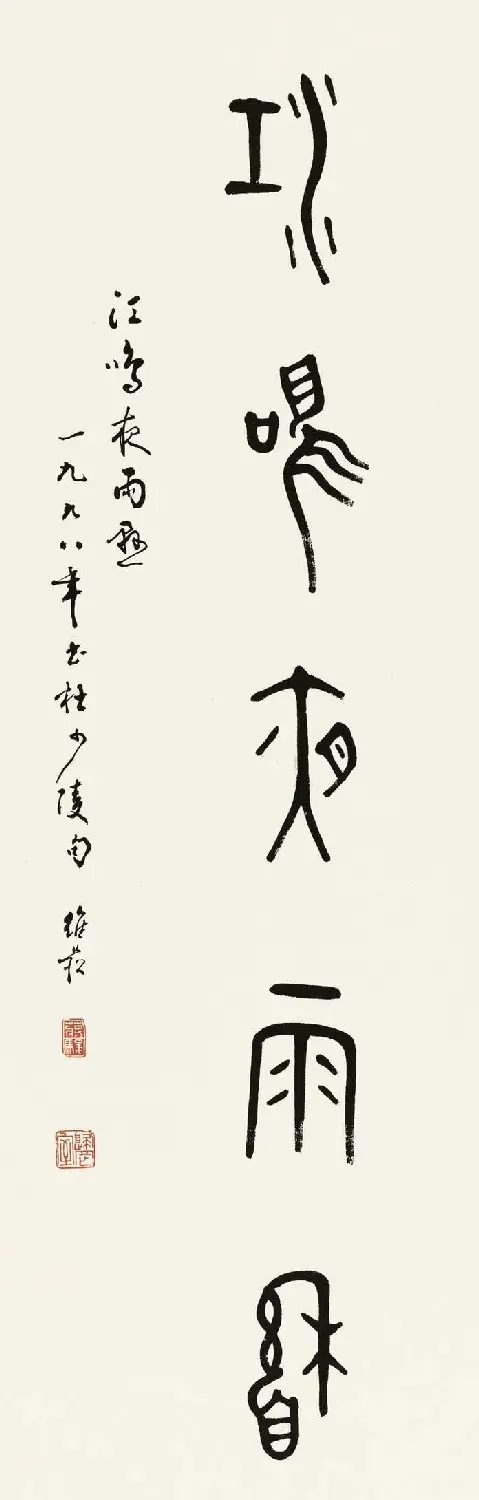 江鳴夜雨縣
江鳴夜雨懸
一九九八年書杜少陵句 維崧